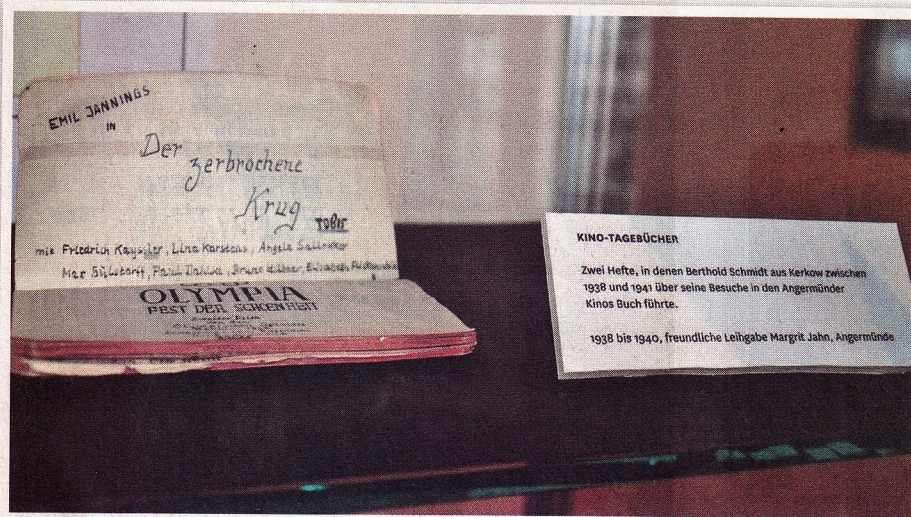 EMIL JANNINGS
IN
Der
zerbrochene
Krug
TOBIS
mit Friedrich Kayssler, Lina Karstens, Angela
Max Gülstorff, Paul Bruno Elisabeth
OLYMPIA
FEST DER SCHÖNHEIT
KINO-TAGEBÜCHER
Zwei Hefte, in denen Berthold Schmidt aus Kerkow zwischen
1938 und 1941 über seine Besuche in den Angermünder
Kinos Buch führte.
1938 bis 1940, freundliche Leihgabe Margrit Jahn, Angermünde